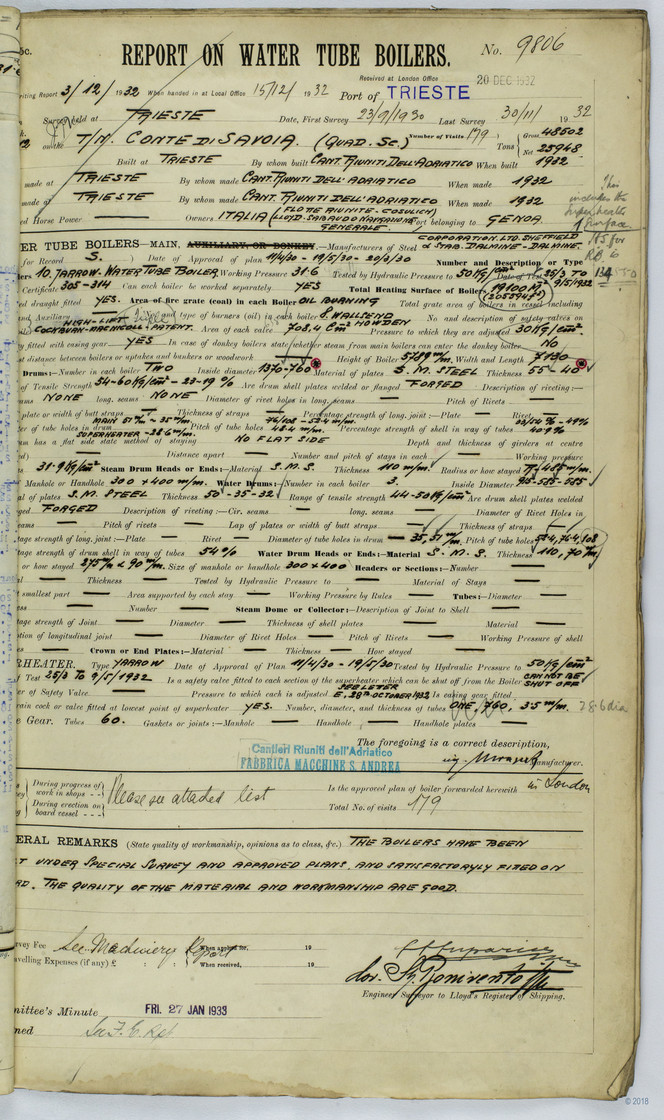 5c.
REPORT ON WATER TUBE BOILERS.
No. 9806
Received at London Office 20 DEC 1932
riting Report 3/12/1932 When handed in at Local Office 15/12/1932 Port of TRIESTE
Survey held at TRIESTE Date, First Survey 23/9/1930 Last Survey 30/11/1932
on the T/N. CONTE DI SAVOIA. (QUAD. SC.) Number of Visits 179 Tons Gross 48502 Net 25948
Built at TRIESTE By whom built CANT. RIUNITI DELL'ADRIATICO When built 1932
made at TRIESTE By whom made CANT. RIUNITI DELL'ADRIATICO When made 1932
made at TRIESTE By whom made CANT. RIUNITI DELL'ADRIATICO When made 1932
ed Horse Power — Owners ITALIA (FLOTTE RIUNITE-COSULICH LLOYD SABAUDO NAVIGAZIONE GENERALE Port belonging to GENOA
This includes the superheater surface
ER TUBE BOILERS—MAIN, AUXILIARY, OR DONKEY.—Manufacturers of Steel CORPORATION. LTD. SHEFFIELD & STAB. DALMINE-DALMINE.
for Record S. Date of Approval of plan 11/4/30 - 19/5/30 - 20/3/30 Number and Description or Type
lers 10. YARROW. WATER TUBE BOILER. Working Pressure 31.6 Tested by Hydraulic Pressure to 50 Kg/cm² Date of Test 25/3 TO 9/5/1932
Certificate. 305-314 Can each boiler be worked separately YES Total Heating Surface of Boilers 19100 M² (205594 ft²)
ed draught fitted YES. Area of fire grate (coal) in each Boiler OIL BURNING Total grate area of boilers in vessel including
and Auxiliary — and type of burners (oil) in each boiler 8. WALLSEND HOWDEN No. and description of safety valves on
HIGH-LIFT COCKBURN-MACNICOLL-PATENT. Area of each valve 708.4 cm² Pressure to which they are adjusted 30 Kg/cm².
y fitted with easing gear YES In case of donkey boilers state whether steam from main boilers can enter the donkey boiler No
st distance between boilers or uptakes and bunkers or woodwork — Height of Boiler 5789 m/m. Width and Length 7130
Drums:—Number in each boiler TWO Inside diameter 1370-760 Material of plates S. M. STEEL Thickness 55-40
of Tensile Strength 54-60 Kg/cm² - 23-19 % Are drum shell plates welded or flanged FORGED Description of riveting:—
ms NONE long. seams NONE Diameter of rivet holes in long. seams — Pitch of Rivets —
plate or width of butt straps — Thickness of straps — Percentage strength of long. joint:—Plate — Rivet —
er of tube holes in drum MAIN 51 m/m - 35 m/m. SUPERHEATER - 28.6 m/m. Pitch of tube holes 76/108 - 52.4 m/m. 48.4 m/m. Percentage strength of shell in way of tubes 33/54 % - 49% 40.9 %
um has a flat side state method of staying NO FLAT SIDE Depth and thickness of girders at centre
ed) Distance apart — Number and pitch of stays in each — Working pressure
s 31.9 Kg/cm² Steam Drum Heads or Ends:—Material S.M.S. Thickness 110 m/m. Radius or how stayed
Manhole or Handhole 300 x 400 m/m. Water Drums:—Number in each boiler 3. Inside Diameter
al of plates S. M. STEEL Thickness 50-35-32 Range of tensile strength 44-50 Kg/cm² Are drum shell plates welded
ged FORGED Description of riveting:—Cir. seams — long. seams — Diameter of Rivet Holes in
eams — Pitch of rivets — Lap of plates or width of butt straps — Thickness of straps —
tage strength of long. joint:—Plate — Rivet — Diameter of tube holes in drum 35, 51 m/m. Pitch of tube holes 52.4, 76.4, 108
tage strength of drum shell in way of tubes 54 % Water Drum Heads or Ends:—Material S. M. S. Thickness 110, 70 m/m
or how stayed 275 m/m & 90 m/m. Size of manhole or handhole 300 x 400 Headers or Sections:—Number —
l — Thickness — Tested by Hydraulic Pressure to — Material of Stays —
smallest part — Area supported by each stay — Working Pressure by Rules — Tubes:—Diameter —
ess — Number — Steam Dome or Collector:—Description of Joint to Shell —
tage strength of Joint — Diameter — Thickness of shell plates — Material —
tion of longitudinal joint — Diameter of Rivet Holes — Pitch of Rivets — Working Pressure of shell
es — Crown or End Plates:—Material — Thickness — How stayed —
RHEATER. Type YARROW Date of Approval of Plan 11/4/30 - 19/5/30 Tested by Hydraulic Pressure to 50 Kg/cm²
Test 25/3 TO 9/5/1932 Is a safety valve fitted to each section of the superheater which can be shut off from the Boiler CAN NOT BE SHUT OFF
er of Safety Valve — Pressure to which each is adjusted SEE LETTER E. 28th OCTOBER 1932 Is easing gear fitted —
rain cock or valve fitted at lowest point of superheater YES. Number, diameter, and thickness of tubes ONE, 760, 3.5 m/m. 28.6 dia
e Gear. Tubes 60. Gaskets or joints:—Manhole — Handhole — Handhole plates —
The foregoing is a correct description,
Cantieri Riuniti dell'Adriatico
FABBRICA MACCHINE S. ANDREA
Manufacturer.
During progress of work in shops - -
During erection on board vessel - - -
Please see attached list
Is the approved plan of boiler forwarded herewith in London
Total No. of visits 179
ERAL REMARKS (State quality of workmanship, opinions as to class, &c.) THE BOILERS HAVE BEEN
T UNDER SPECIAL SURVEY AND APPROVED PLANS. AND SATISFACTORYLY FIXED ON
RD. THE QUALITY OF THE MATERIAL AND WORKMANSHIP ARE GOOD.
rvey Fee See Machinery Report When applied for, 19
avelling Expenses (if any) £ : : When received, 19
Engineer Surveyor to Lloyd's Register of Shipping.
mittee's Minute FRI. 27 JAN 1933
ned
© 2018